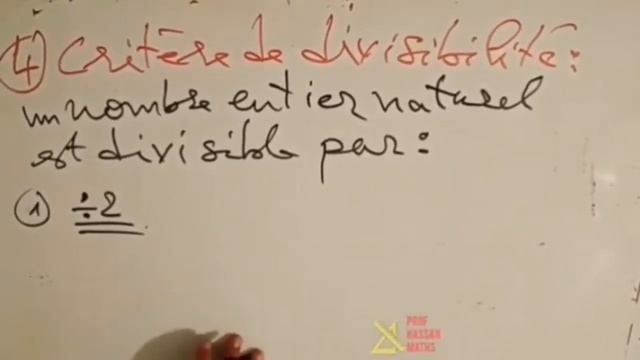 ④ Critère de divisibilité :
un nombre entier naturel
est divisible par :
① ÷2
PROF
HASSAN
MATHS